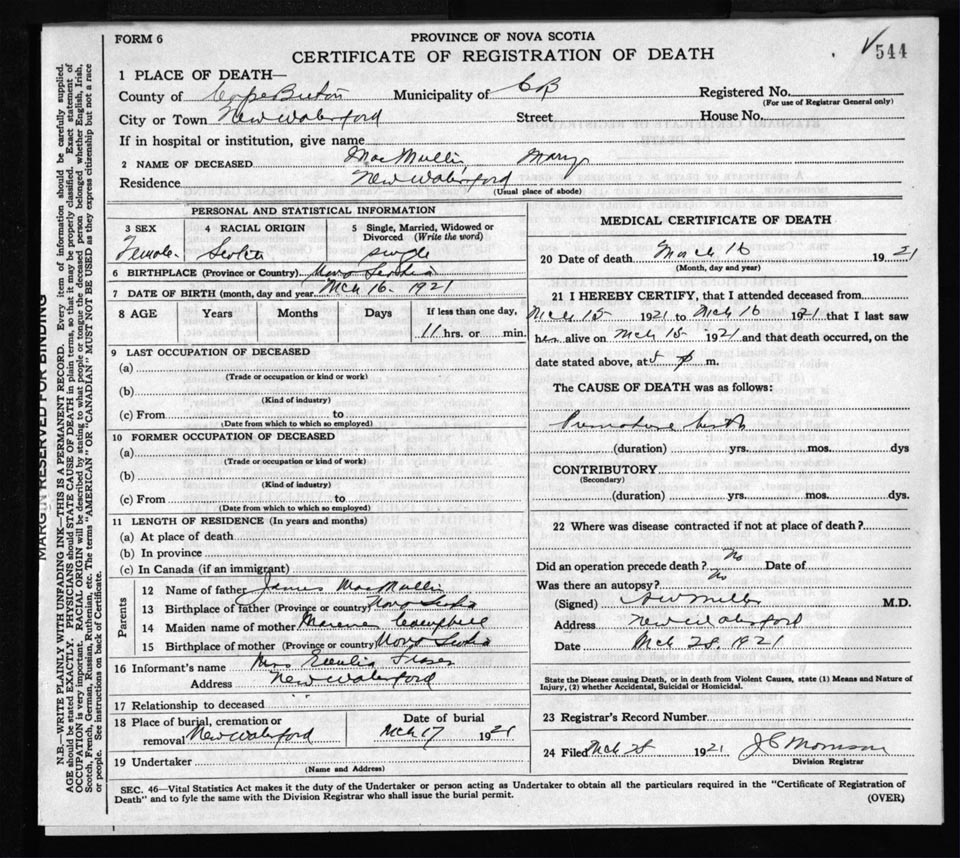 FORM 6
PROVINCE OF NOVA SCOTIA
CERTIFICATE OF REGISTRATION OF DEATH
✓ 544
1 PLACE OF DEATH—
County of Cape Breton Municipality of CB Registered No.
(For use of Registrar General only)
City or Town New Waterford Street House No.
If in hospital or institution, give name
2 NAME OF DECEASED MacMullin Mary
Residence New Waterford
(Usual place of abode)
PERSONAL AND STATISTICAL INFORMATION
3 SEX 4 RACIAL ORIGIN 5 Single, Married, Widowed or Divorced (Write the word)
Female Scotch single
6 BIRTHPLACE (Province or Country) Nova Scotia
7 DATE OF BIRTH (month, day and year) Mch 16 1921
8 AGE Years Months Days If less than one day,
11 hrs. or min.
9 LAST OCCUPATION OF DECEASED
(a)
(Trade or occupation or kind or work)
(b)
(Kind of industry)
(c) From to
(Date from which to which so employed)
10 FORMER OCCUPATION OF DECEASED
(a)
(Trade or occupation or kind of work)
(b)
(Kind of industry)
(c) From to
(Date from which to which so employed)
11 LENGTH OF RESIDENCE (In years and months)
(a) At place of death
(b) In province
(c) In Canada (if an immigrant)
Parents
12 Name of father James MacMullin
13 Birthplace of father (Province or country) Nova Scotia
14 Maiden name of mother Campbell
15 Birthplace of mother (Province or country) Nova Scotia
16 Informant's name Mrs Fraser
Address New Waterford
17 Relationship to deceased
18 Place of burial, cremation or removal New Waterford Date of burial Mch 17 1921
19 Undertaker
(Name and Address)
MEDICAL CERTIFICATE OF DEATH
20 Date of death March 16 1921
(Month, day and year)
21 I HEREBY CERTIFY, that I attended deceased from
Mch 15 1921 to Mch 16 1921 that I last saw
her alive on Mch 15 1921 and that death occurred, on the
date stated above, at 5 p m.
The CAUSE OF DEATH was as follows:
Premature birth
(duration) yrs. mos. dys
CONTRIBUTORY
(Secondary)
(duration) yrs. mos. dys.
22 Where was disease contracted if not at place of death?
Did an operation precede death? No Date of
Was there an autopsy? No
(Signed) Miller M.D.
Address New Waterford
Date Mch 28 1921
State the Disease causing Death, or in death from Violent Causes, state (1) Means and Nature of
Injury, (2) whether Accidental, Suicidal or Homicidal.
23 Registrar's Record Number
24 Filed Mch 28 1921 J C Morrison
Division Registrar
SEC. 46—Vital Statistics Act makes it the duty of the Undertaker or person acting as Undertaker to obtain all the particulars required in the "Certificate of Registration of
Death" and to fyle the same with the Division Registrar who shall issue the burial permit.
(OVER)
MARGIN RESERVED FOR BINDING
N.B.—WRITE PLAINLY WITH UNFADING INK—THIS IS A PERMANENT RECORD. Every item of information should be carefully supplied.
AGE should be stated EXACTLY. PHYSICIANS should STATE CAUSE OF DEATH in plain terms, so that it may be properly classified. Exact statement of
OCCUPATION is very important. RACIAL ORIGIN will be described by stating to what people or tongue the deceased person belonged whether English, Irish,
Scotch, French, German, Russian, Ruthenian, etc. The terms "AMERICAN" OR "CANADIAN" MUST NOT BE USED as they express citizenship but not a race
or people. See instructions on back of Certificate.